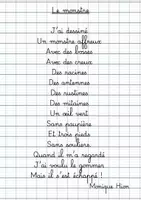 Le monstre
J'ai dessiné
Un monstre affreux
Avec des bosses
Avec des creux
Des racines
Des antennes
Des rustines
Des mitaines
Un œil vert
Sans paupière
Et trois pieds
Sans souliers.
Quand il m'a regardé
J'ai voulu le gommer
Mais il s'est échappé !
Monique Hion